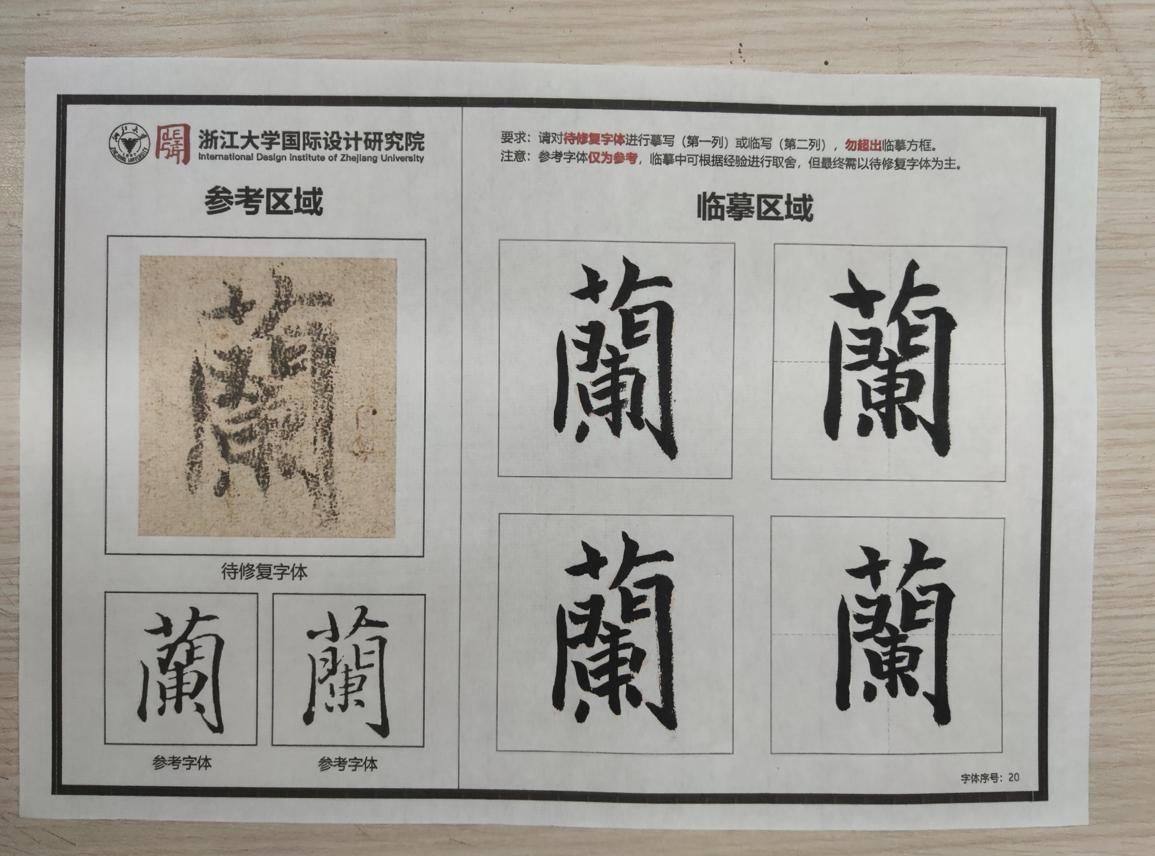 浙江大学国际设计研究院
International Design Institute of Zhejiang University
参考区域
蘭
待修复字体
蘭
蘭
参考字体
参考字体
要求：请对待修复字体进行摹写（第一列）或临写（第二列），勿超出临摹方框。
注意：参考字体仅为参考，临摹中可根据经验进行取舍，但最终需以待修复字体为主。
临摹区域
蘭
蘭
蘭
蘭
字体序号：20